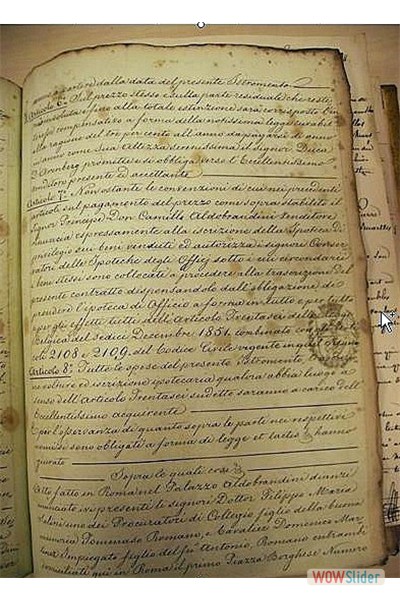 anni a partire dalla data del presente Istromento.
Articolo 6.° Sul prezzo stesso e sulla parte residuale che reste-
rà dovuta e fino alla totale estinzione sarà corrisposto l'in-
compensativo a forma della notissima legge
alla ragione del tre per cento all'anno da pagarsi
in anno come Sua Altezza Serenissima il Signor Duca
D'Aremberg promette e si obbliga verso l'Eccellentissimo
venditore presente ed accettante
Articolo 7.° Non ostante le convenzioni di cui nei precedenti
articoli sul pagamento del prezzo come sopra stabilito il
Signor Principe Don Camillo Aldobrandini venditore
rinuncia espressamente alla iscrizione della Ipoteca di
privilegio sui beni venduti ed autorizza i Signori Conser-
vatori delle Ipoteche degli Offici sotto i cui circondarii
i beni stessi sono collocati a procedere alla trascrizione del
presente contratto dispensandolo dall'obbligazione di
prendere l'ipoteca di Officio a forma in tutto e per tutto
e per gli effetti tutti dell'Articolo Trentasei della Legge
Belgica del sedici Decembre 1851. combinato con gli Arti-
coli 2108 e 2109. del Codice Civile vigente in quel Regno
Articolo 8.° Tutte le spese del presente Istromento,
e volture ed iscrizione ipotecaria qualora abbia luogo a
senso dell'Articolo Trentasei suddetto saranno a carico dell'
Eccellentissimo acquirente
E per l'osservanza di quanto sopra le parti nei respettivi
nomi si sono obbligate a forma di legge et tactis hanno
giurato
Sopra le quali cose
Atto fatto in Roma nel Palazzo Aldobrandini
ivi presenti li signori Dottor Filippo Maria
Salini uno dei Procuratori di Collegio figlio della buona
memoria Tommaso Romano, e Cavaliere Domenico
Impiegato figlio del fu Antonio, Romano entrambi
domiciliati qui in Roma il primo Piazza Borghese Numero
WOWSlider